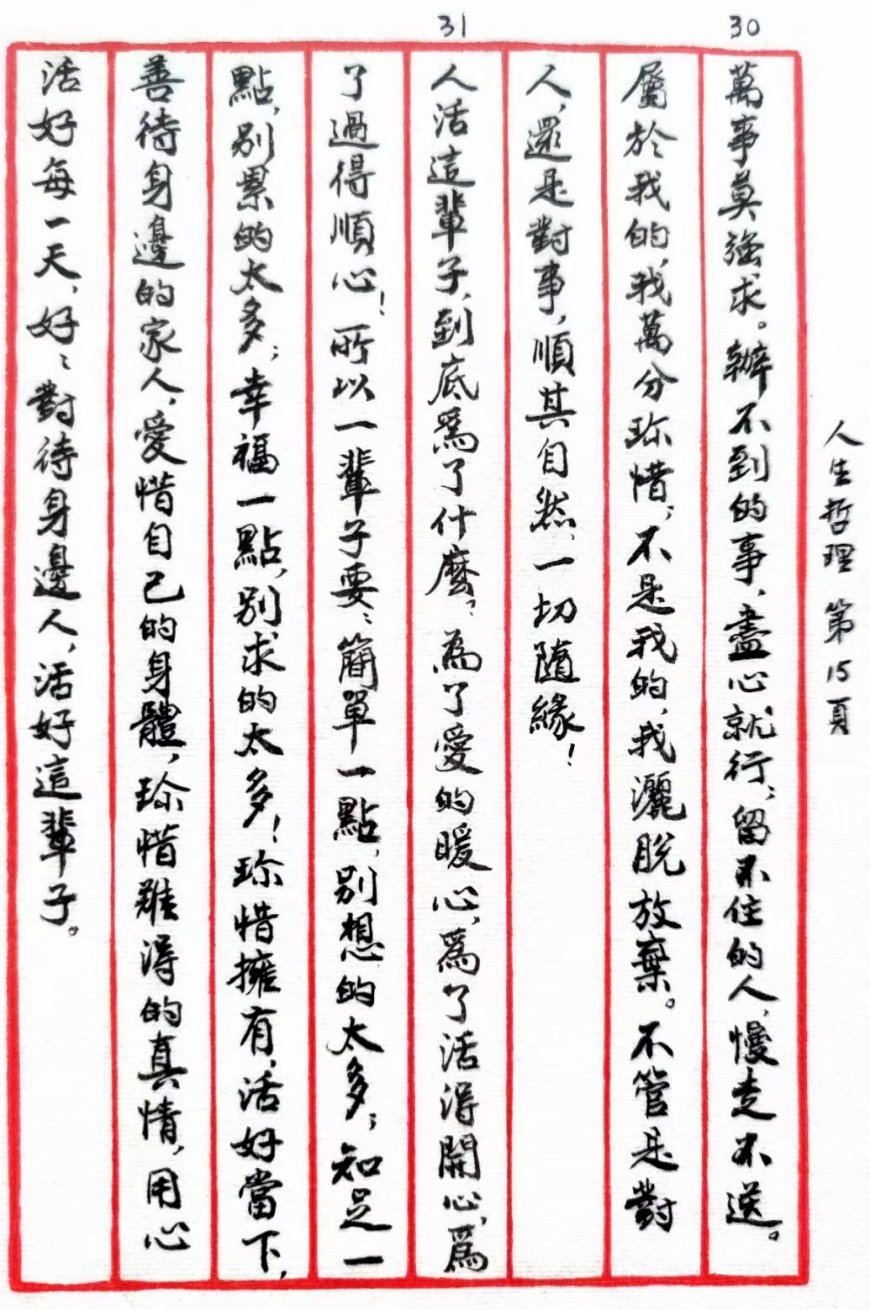 人生哲理 第15頁
30
萬事莫強求。辦不到的事,盡心就行;留不住的人,慢走不送。
屬於我的,我萬分珎惜;不是我的,我灑脫放棄。不管是對
人,還是對事,順其自然,一切隨緣!
31
人活這輩子,到底爲了什麼?為了愛的暖心,爲了活得開心,爲
了過得順心!所以一輩子要:簡單一點,別想的太多;知足一
點,別累的太多;幸福一點,別求的太多!珎惜擁有,活好當下,
善待身邊的家人,愛惜自己的身體,珎惜難得的真情,用心
活好每一天,好〻對待身邊人,活好這輩子。